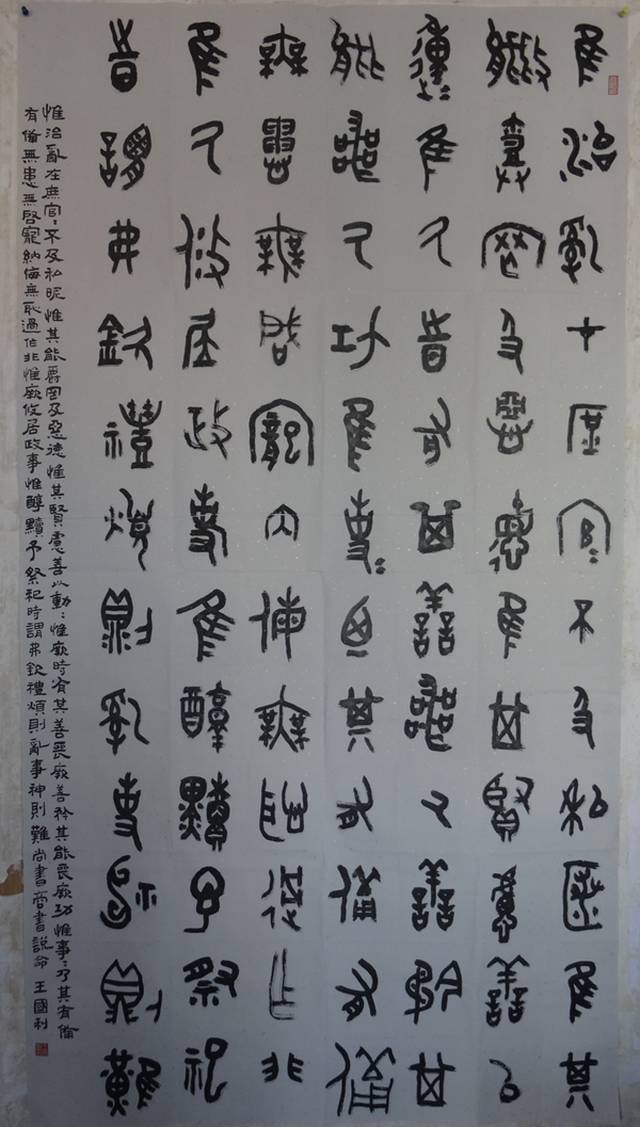 隹治亂才庶官=不及私昵隹其
能爵罔及惡德隹其賢慮善以
動=隹厥時有其善喪厥善矜其
能喪厥功隹事=乃其有備有備
無患無啟寵內侮無恥過作非
隹厥攸居政事隹醇黷予祭祀
時謂弗欽禮煩則亂事神則難
惟治亂在庶官=不及私昵惟其能爵罔及惡德惟其賢慮善以動=惟厥時有其善喪厥善矜其能喪厥功惟事=乃其有備
有備無患無啓寵納侮無恥過作非惟厥攸居政事惟醇黷予祭祀時謂弗欽禮煩則亂事神則難尚書商書說命 王國利